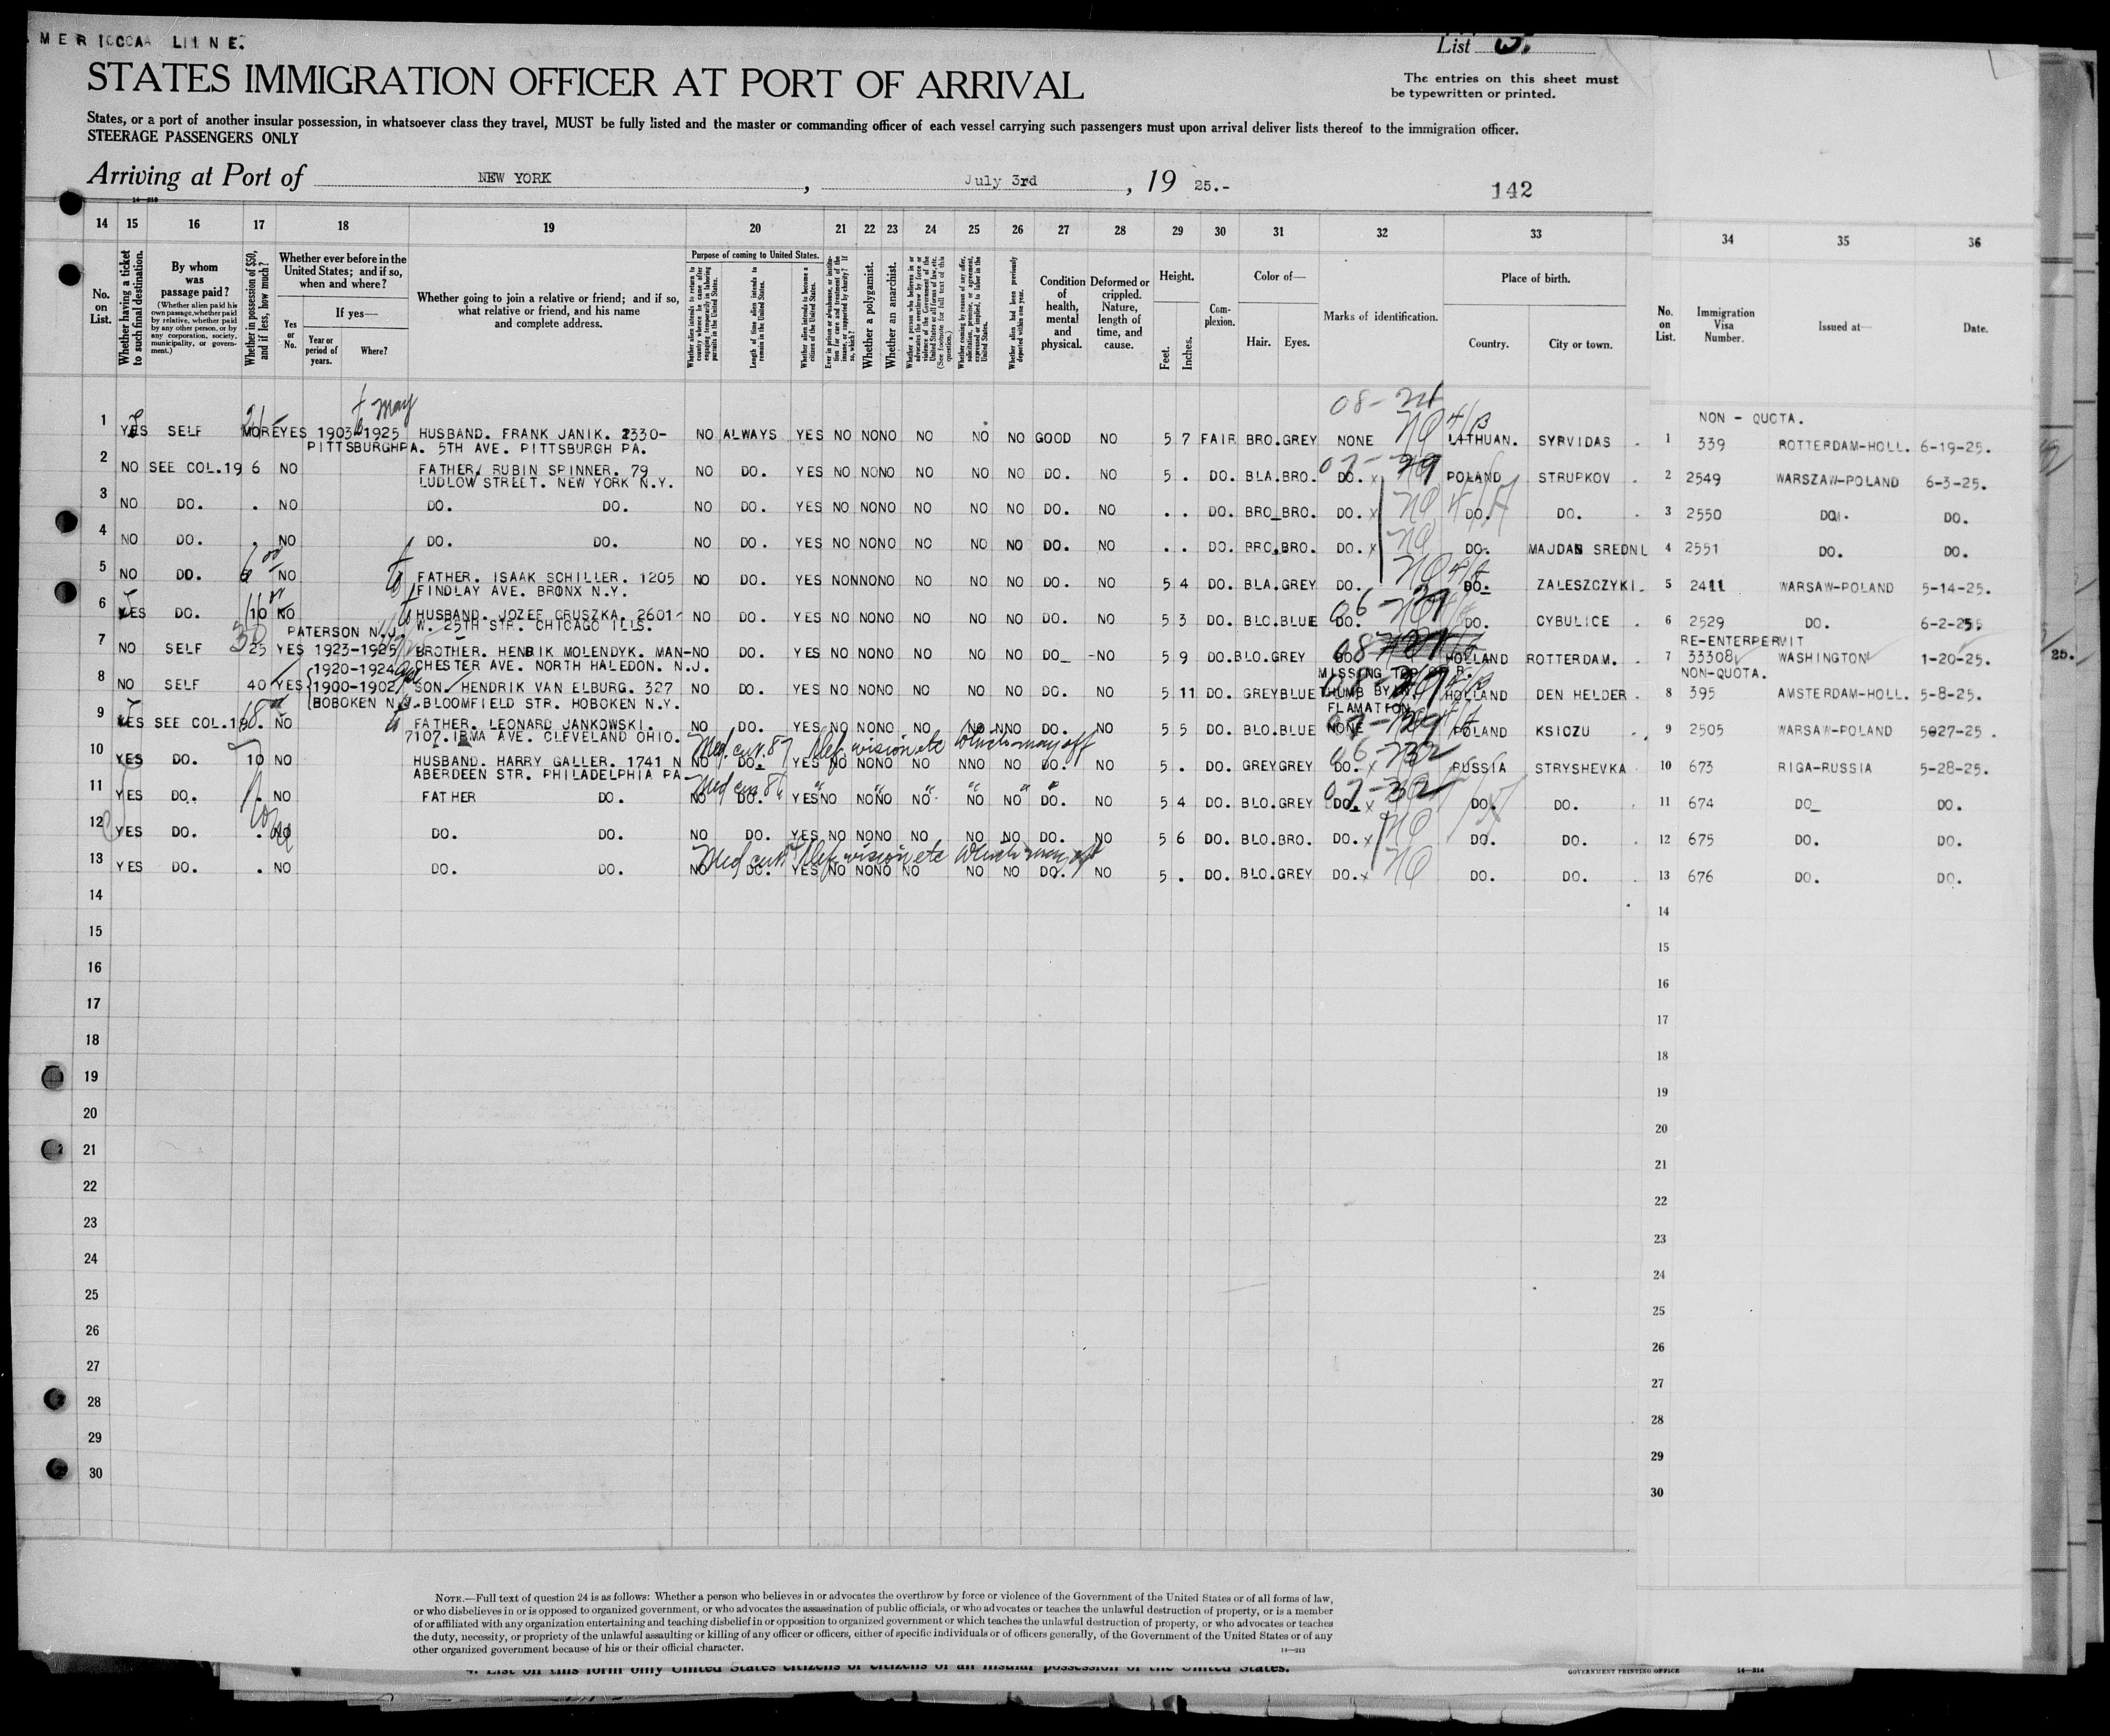 MERICCAA LINE.
List
STATES IMMIGRATION OFFICER AT PORT OF ARRIVAL
The entries on this sheet must
be typewritten or printed.
States, or a port of another insular possession, in whatsoever class they travel, MUST be fully listed and the master or commanding officer of each vessel carrying such passengers must upon arrival deliver lists thereof to the immigration officer.
STEERAGE PASSENGERS ONLY
Arriving at Port of NEW YORK, July 3rd, 19 25.-
142
14 15 16 17 18 19 20 21 22 23 24 25 26 27 28 29 30 31 32 33 34 35 36
No. on List.
Whether having a ticket to such final destination.
By whom was passage paid?
(Whether alien paid his own passage, whether paid by relative, whether paid by any other person, or by any corporation, society, municipality, or government.)
Whether in possession of $50, and if less, how much?
Whether ever before in the United States; and if so, when and where?
Yes or No.
If yes—
Year or period of years.
Where?
Whether going to join a relative or friend; and if so, what relative or friend, and his name and complete address.
Purpose of coming to United States.
Whether alien intends to return to country whence he came after engaging temporarily in laboring pursuits in the United States.
Length of time alien intends to remain in the United States.
Whether alien intends to become a citizen of the United States.
Ever in prison or almshouse, or institution for care and treatment of the insane, or supported by charity? If so, which?
Whether a polygamist.
Whether an anarchist.
Whether coming by reason of any offer, solicitation, promise, or agreement, expressed or implied, to labor in the United States.
Whether alien had been previously deported within one year.
Condition of health, mental and physical.
Deformed or crippled. Nature, length of time, and cause.
Height.
Feet. Inches.
Complexion.
Color of—
Hair. Eyes.
Marks of identification.
Place of birth.
Country. City or town.
No. on List.
Immigration Visa Number.
Issued at—
Date.
May
08-24
NON - QUOTA.
1 YES SELF MORE YES 1903-1925 HUSBAND. FRANK JANIK. 2330- NO ALWAYS YES NO NONO NO NO NO GOOD NO 5 7 FAIR BRO.GREY NONE LITHUAN. SYRVIDAS 1 339 ROTTERDAM-HOLL. 6-19-25.
PITTSBURGHPA. 5TH AVE. PITTSBURGH PA.
2 NO SEE COL.19 6 NO FATHER/ RUBIN SPINNER. 79 NO DO. YES NO NONO NO NO NO DO. NO 5 . DO. BLA.BRO. DO. x POLAND STRUPKOV 2 2549 WARSZAW-POLAND 6-3-25.
LUDLOW STREET. NEW YORK N.Y.
3 NO DO. . NO DO. DO. NO DO. YES NO NONO NO NO NO DO. NO . . DO. BRO_BRO. DO. x DO. DO. 3 2550 DO. DO.
4 NO DO. . NO DO. DO. NO DO. YES NO NONO NO NO NO DO. NO . . DO. BRO.BRO. DO. x DO. MAJDAN SREDNI 4 2551 DO. DO.
5 NO DO. NO FATHER. ISAAK SCHILLER. 1205 NO DO. YES NONNONO NO NO NO DO. NO 5 4 DO. BLA.GREY DO. DO. ZALESZCZYKI. 5 2411 WARSAW-POLAND 5-14-25.
FINDLAY AVE. BRONX N.Y.
6 YES DO. 10 NO HUSBAND. JOZEF GRUSZKA. 2601- NO DO. YES NO NONO NO NO NO DO. NO 5 3 DO. BLO.BLUE DO. DO. CYBULICE 6 2529 DO. 6-2-25.
W. 25TH STR. CHICAGO ILLS.
PATERSON N.J.
RE-ENTERPERMIT
7 NO SELF 25 YES 1923-1925 BROTHER. HENDRIK MOLENDYK. MAN- NO DO. YES NO NONO NO NO NO DO_ -NO 5 9 DO.BLO.GREY DO. HOLLAND ROTTERDAM. 7 33308 WASHINGTON 1-20-25.
1920-1924 CHESTER AVE. NORTH HALEDON. N.J.
MISSING TOP OF R.
NON-QUOTA.
8 NO SELF 40 YES 1900-1902 SON. HENDRIK VAN ELBURG. 327 NO DO. YES NO NONO NO NO NO DO. NO 5 11 DO. GREYBLUE THUMB BY IN- HOLLAND DEN HELDER 8 395 AMSTERDAM-HOLL. 5-8-25.
HOBOKEN N.J. BLOOMFIELD STR. HOBOKEN N.Y.
FLAMATION
9 YES SEE COL.19 NO FATHER. LEONARD JANKOWSKI. NO DO. YES NO NONO NO NO NNO DO. NO 5 5 DO. BLO.BLUE NONE POLAND KSIOZU 9 2505 WARSAW-POLAND 5027-25.
7107.IRMA AVE. CLEVELAND OHIO.
Med. cert. 87 Def. vision etc which may aff
10 YES DO. 10 NO HUSBAND. HARRY GALLER. 1741 N NO DO. YES NO NONO NO NNO NO DO. NO 5 . DO. GREYGREY DO. x RUSSIA STRYSHEVKA 10 673 RIGA-RUSSIA 5-28-25.
ABERDEEN STR. PHILADELPHIA PA-
11 YES DO. . NO FATHER DO. NO DO. YESNO NONO NO NO NO DO. NO 5 4 DO. BLO.GREY DO. x DO. DO. 11 674 DO_ DO.
12 YES DO. . NO DO. DO. NO DO. YES NO NONO NO NO NO DO. NO 5 6 DO. BLO.BRO. DO. x DO. DO. 12 675 DO. DO.
Med cert Def vision etc which may aff
13 YES DO. . NO DO. DO. NO DO. YES NO NONO NO NO NO DO. NO 5 . DO. BLO.GREY DO. x DO. DO. 13 676 DO. DO.
14 14
15 15
16 16
17 17
18 18
19 19
20 20
21 21
22 22
23 23
24 24
25 25
26 26
27 27
28 28
29 29
30 30
NOTE.—Full text of question 24 is as follows: Whether a person who believes in or advocates the overthrow by force or violence of the Government of the United States or of all forms of law,
or who disbelieves in or is opposed to organized government, or who advocates the assassination of public officials, or who advocates or teaches the unlawful destruction of property, or is a member
of or affiliated with any organization entertaining and teaching disbelief in or opposition to organized government or which teaches the unlawful destruction of property, or who advocates or teaches
the duty, necessity, or propriety of the unlawful assaulting or killing of any officer or officers, either of specific individuals or of officers generally, of the Government of the United States or of any
other organized government because of his or their official character.
14—213
4. List on this form only United States citizens or citizens of an insular possession of the United States.
GOVERNMENT PRINTING OFFICE 14—214